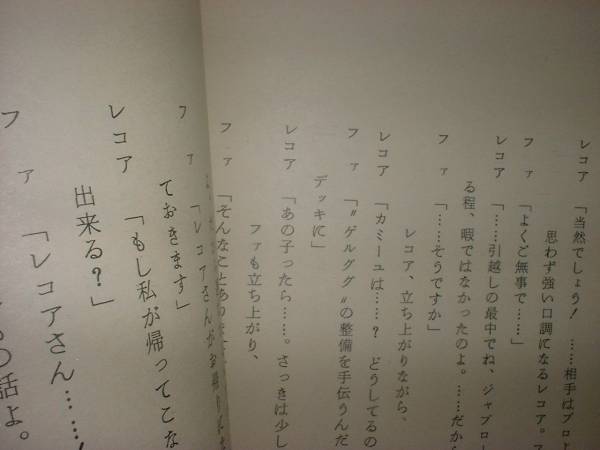 レコア「当然でしょう! ……相手はプロよ
思わず強い口調になるレコア。
ファ「よくご無事で……」
レコア「……引越しの最中でね、ジャブロー
る程、暇ではなかったのよ。……だから
ファ「……そうですか」
レコア、立ち上がりながら、
レコア「カミーユは……? どうしてるの
ファ「〝ゲルググ〟の整備を手伝うんだ
デッキに」
レコア「あの子ったら……。さっきは少し
ファも立ち上がり、
ファ「そんなことあり
ファ「レコアさんがお帰りに
ておきます」
レコア「もし私が帰ってこな
出来る?」
ファ「レコアさん……!
の話よ。